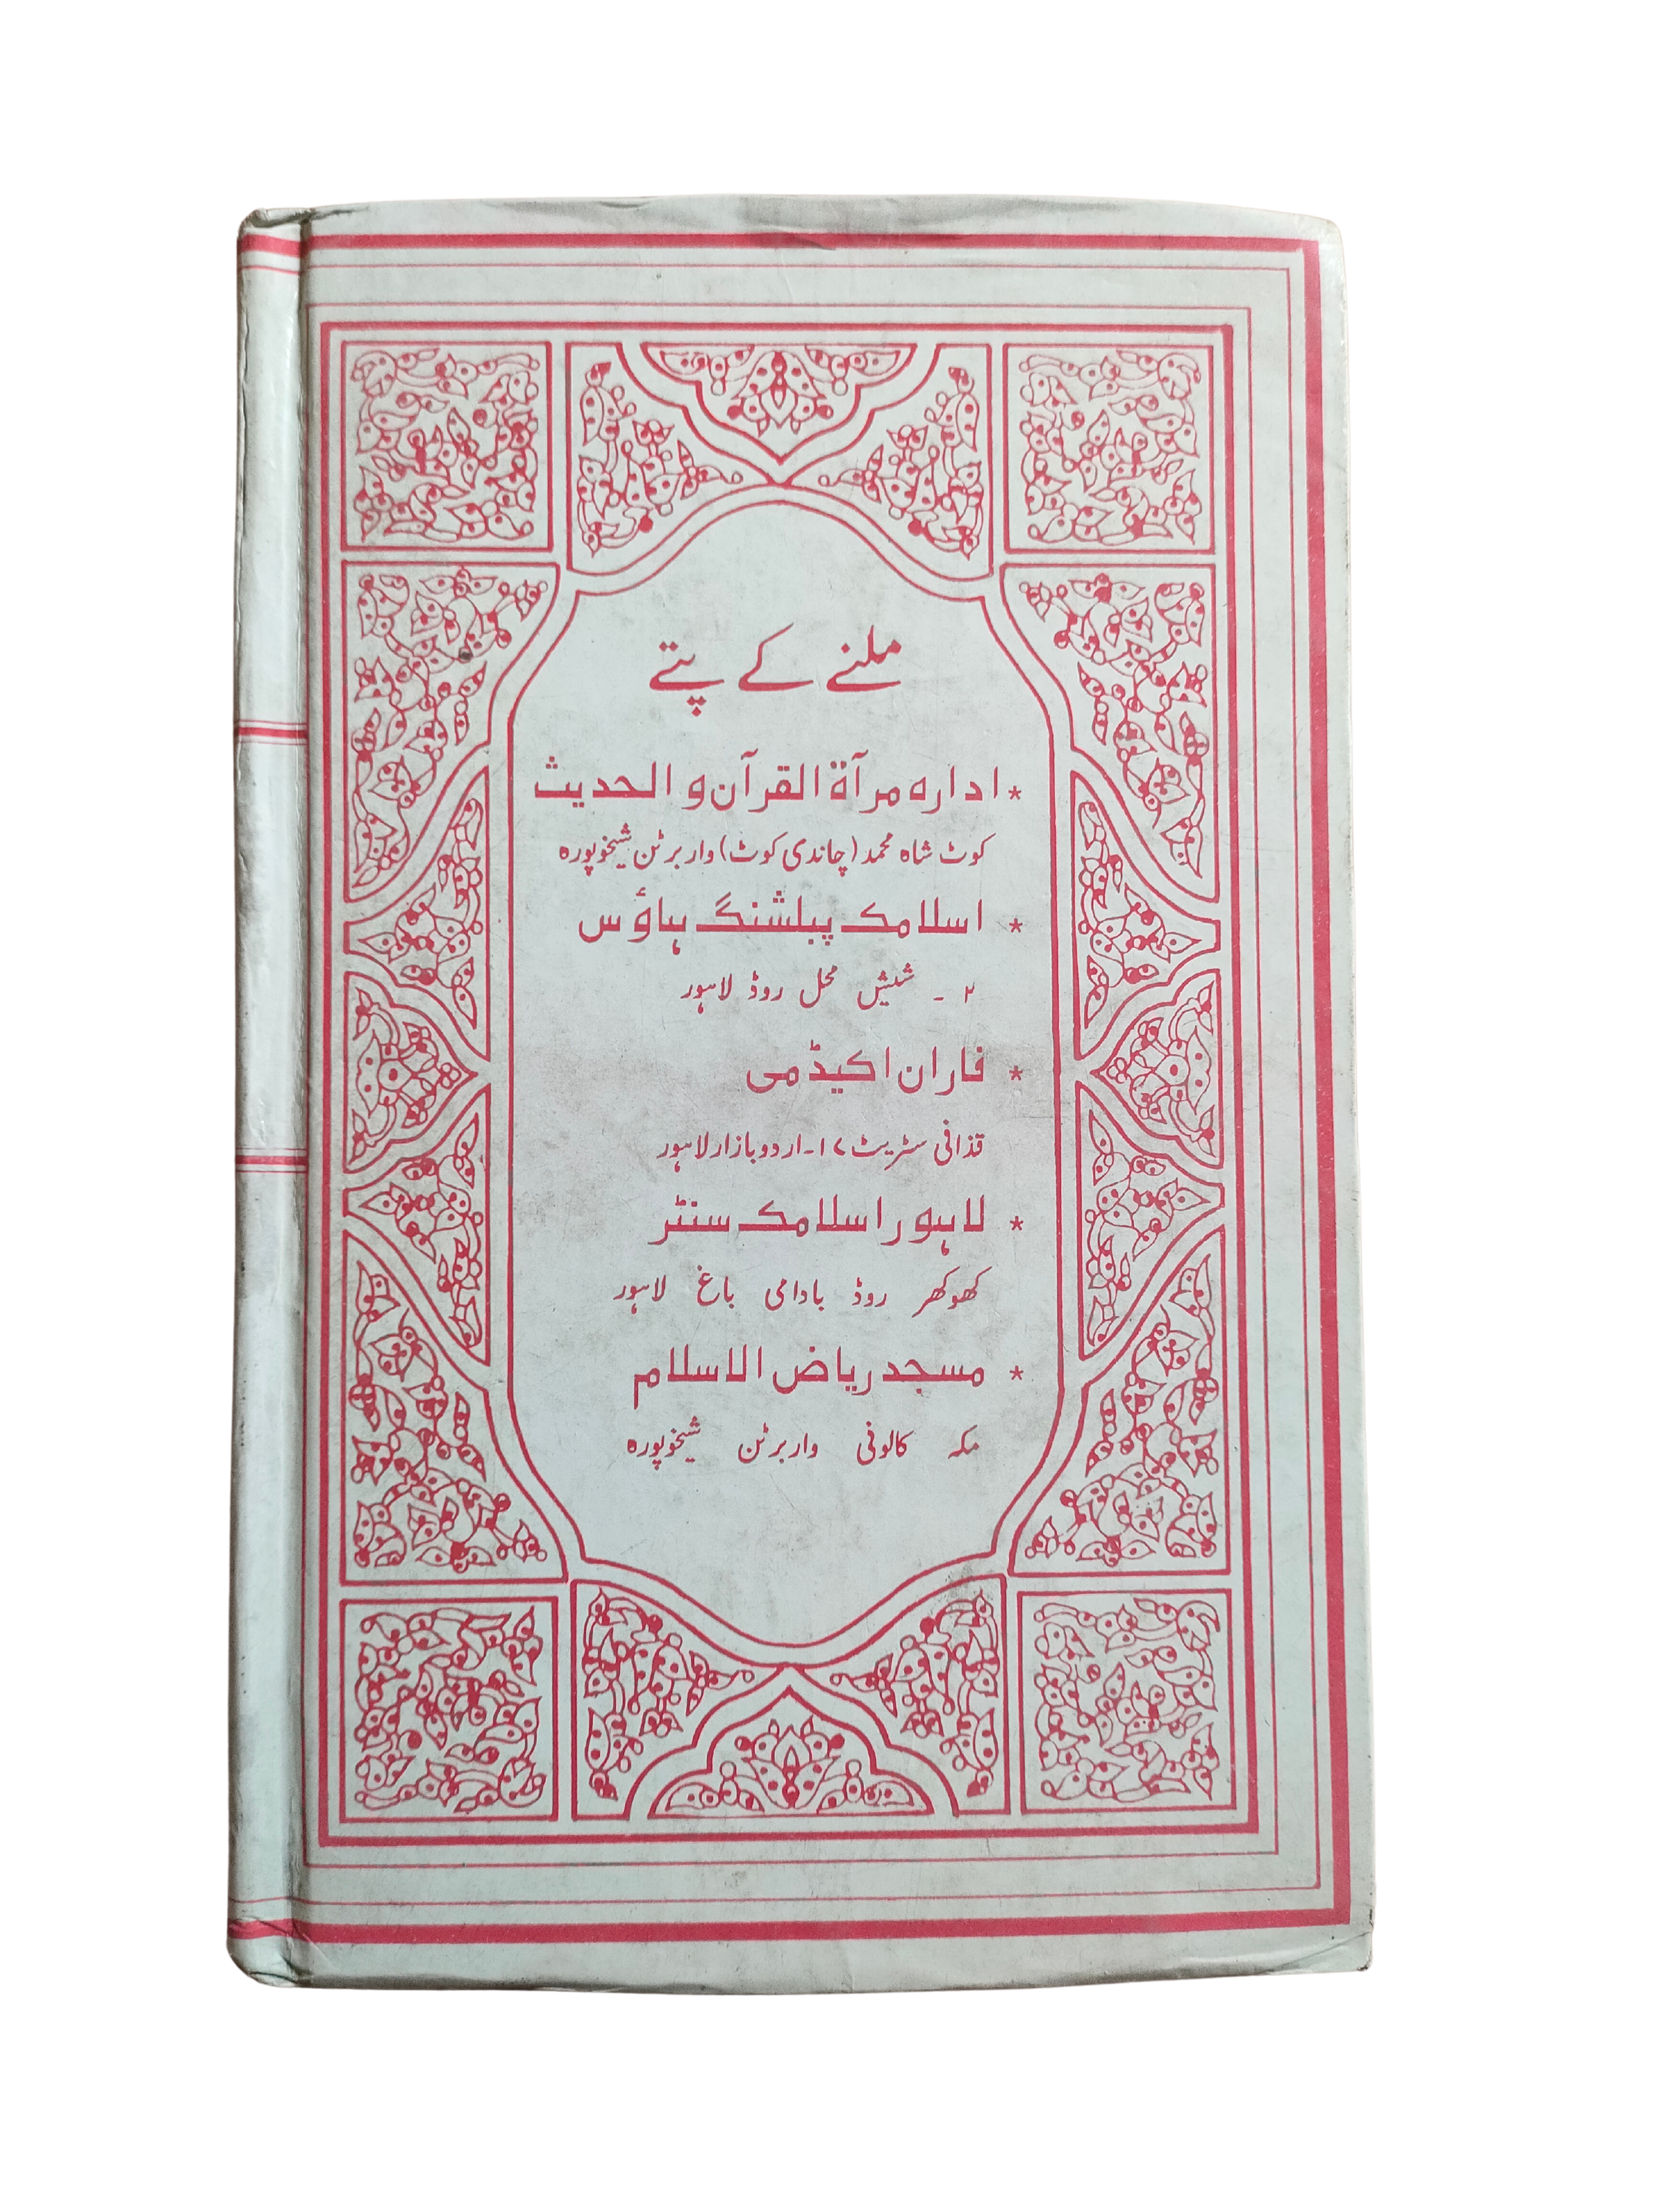 ملنے کے پتے
* ادارہ مرآة القرآن و الحدیث
کوٹ شاہ محمد (چاندی کوٹ) واربرٹن شیخوپورہ
* اسلامک پبلشنگ ہاؤس
۲ - شیش محل روڈ لاہور
* فاران اکیڈمی
قذافی سٹریٹ ۱۷-اردو بازار لاہور
* لاہور اسلامک سنٹر
کھوکھر روڈ بادامی باغ لاہور
* مسجد ریاض الاسلام
مکہ کالونی واربرٹن شیخوپورہ